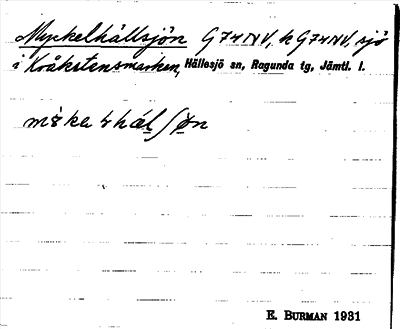 Myckelhällsjön G74NV, k G74NV, sjö
i Kråkstensmarken, Hällesjö sn, Ragunda tg, Jämtl. l.
E. BURMAN 1931